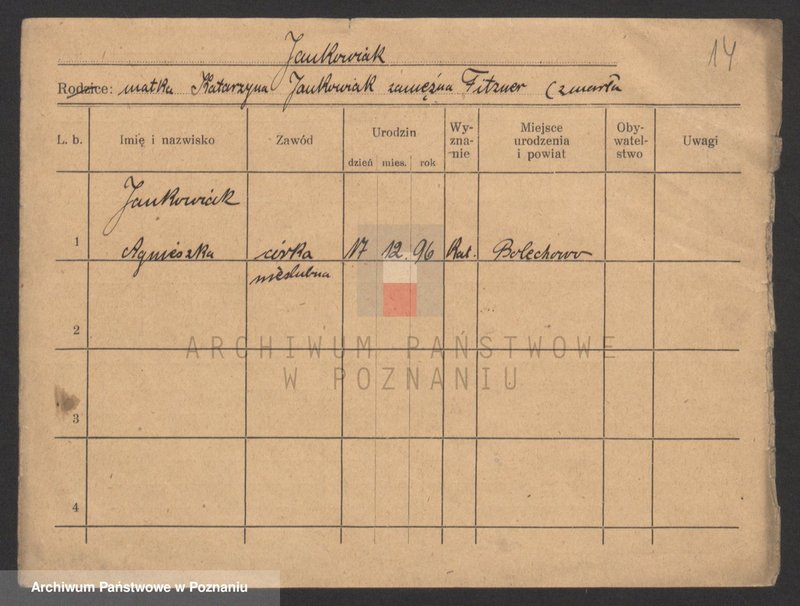 14
Jankowiak
Rodzice: matka Katarzyna Jankowiak zamężna Fitzner (zmarła
L. b. Imię i nazwisko Zawód Urodzin dzień mies. rok Wy-zna-nie Miejsce urodzenia i powiat Oby-watel-stwo Uwagi
Jankowiak
1 Agnieszka córka 17 12. 96 Kat. Bolechowo
nieślubna
2
ARCHIWUM PAŃSTWOWE
W POZNANIU
3
4
Archiwum Państwowe w Poznaniu